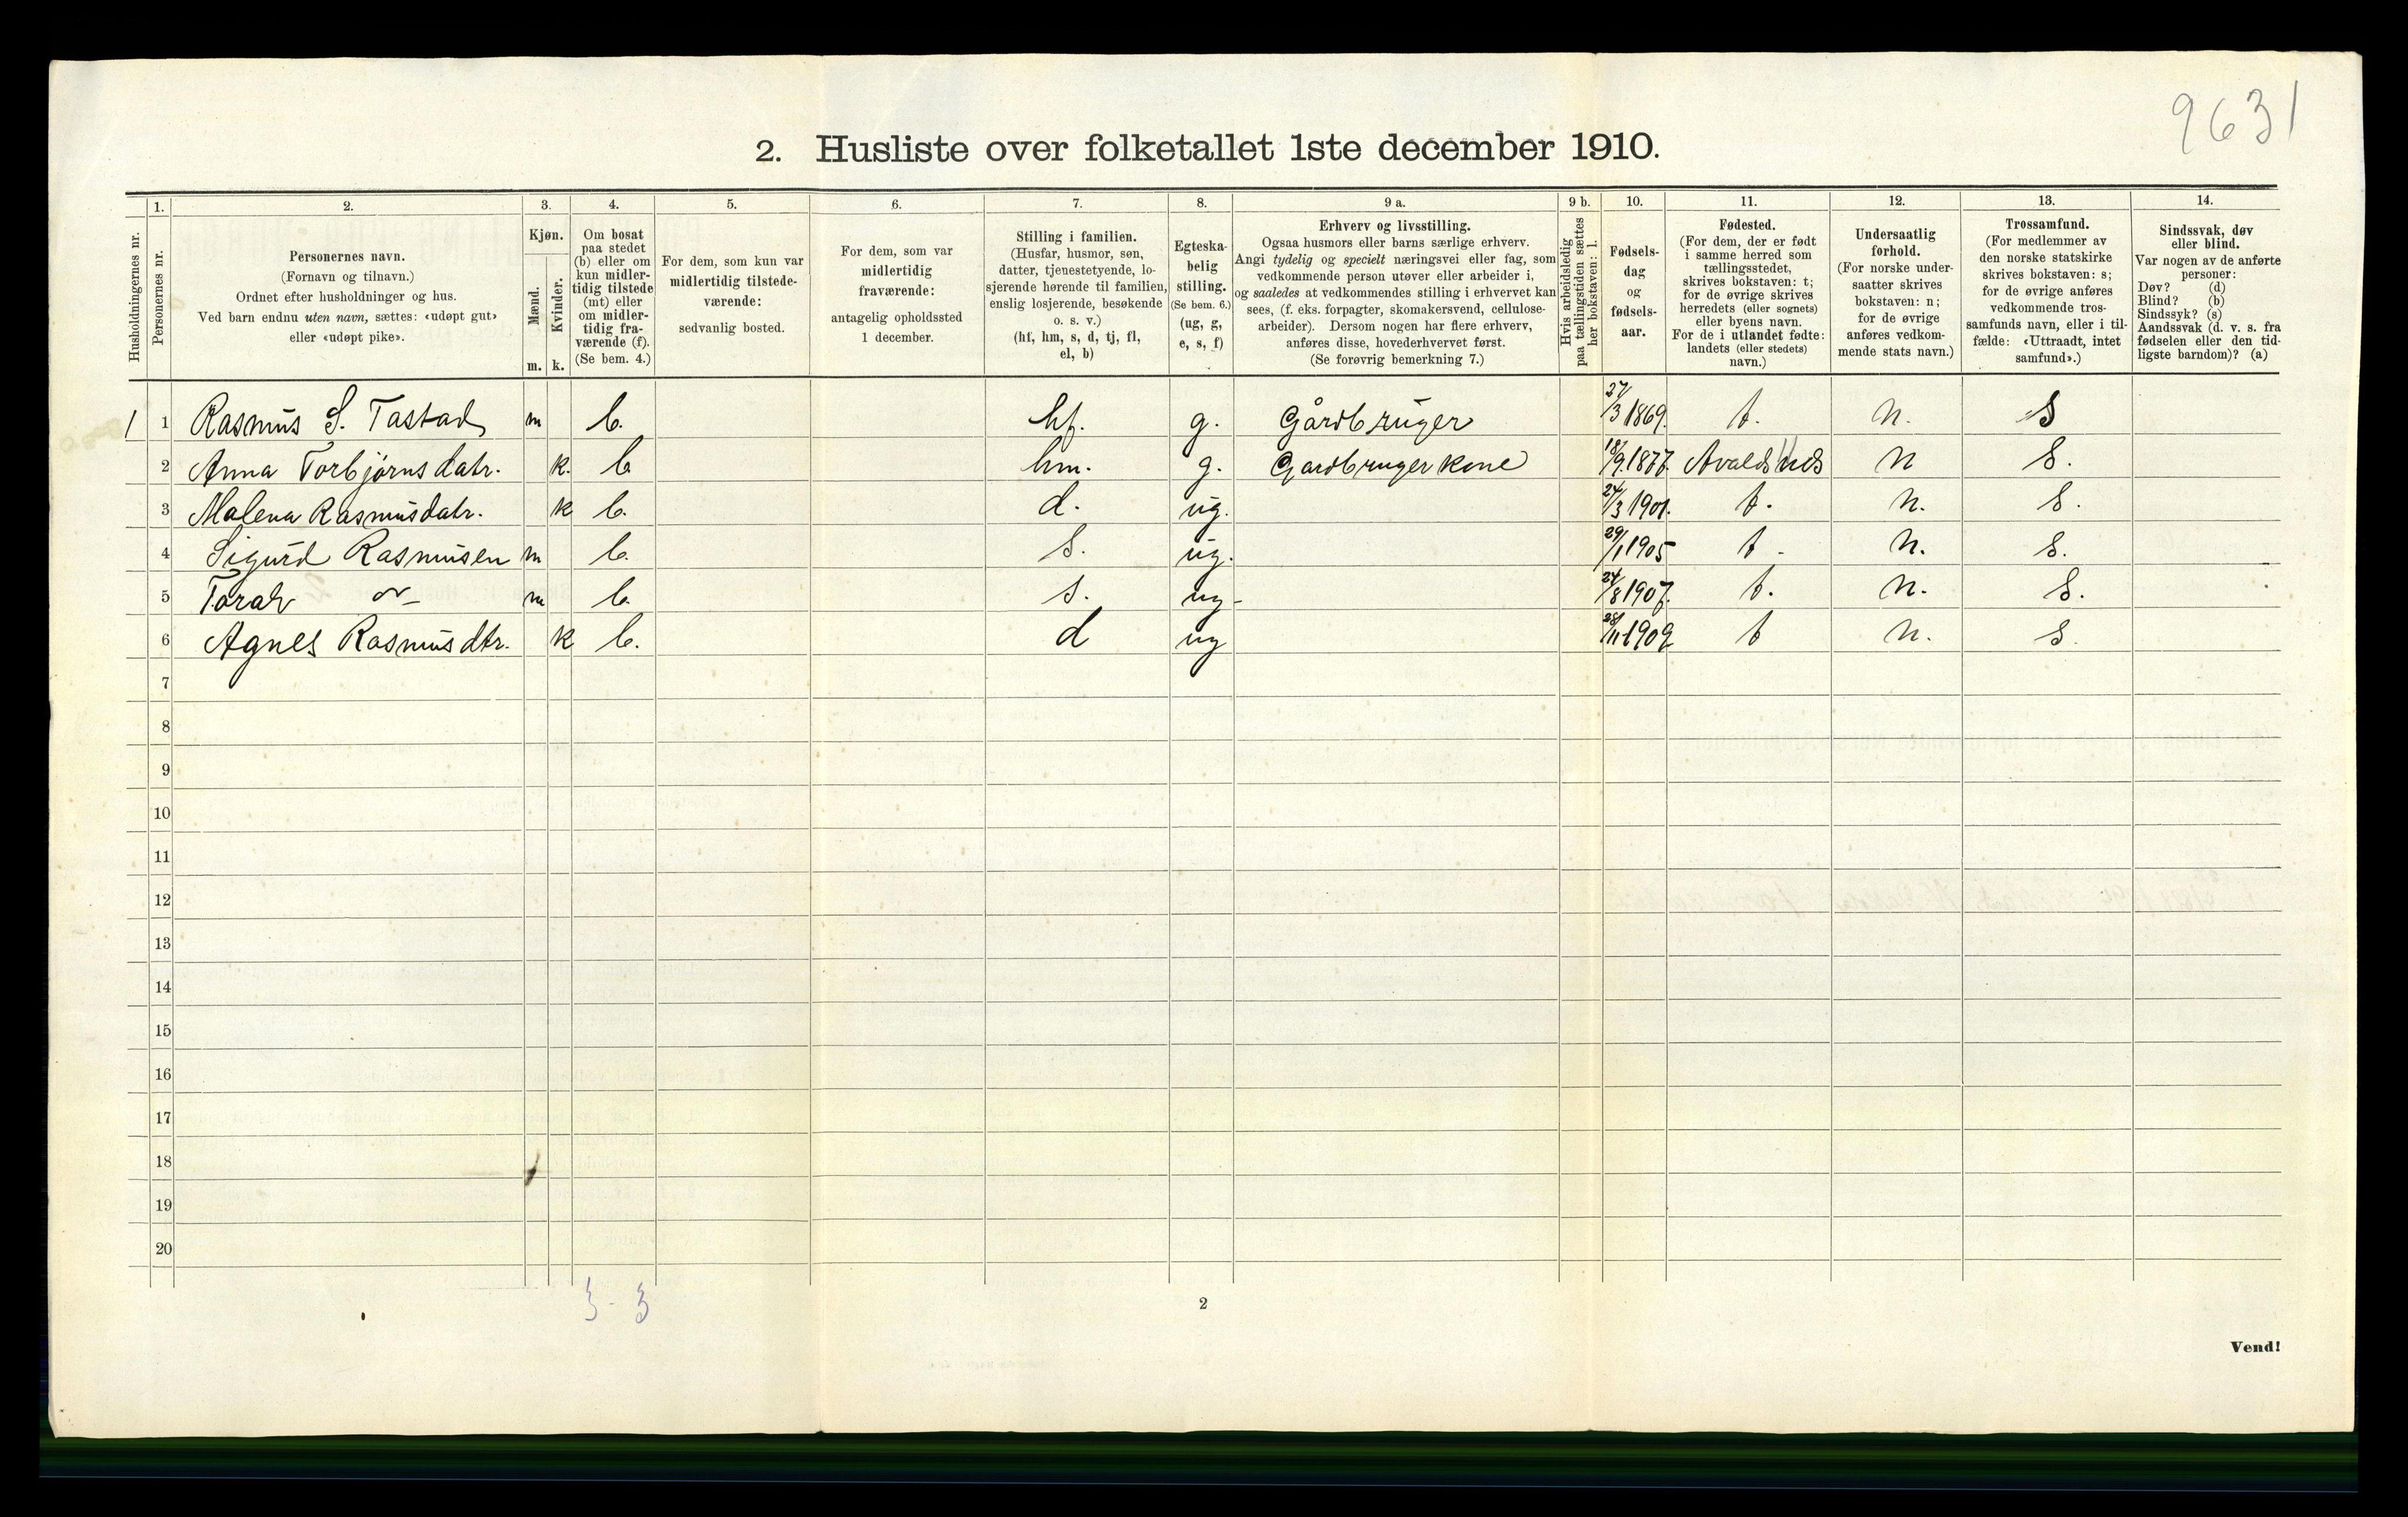 9631
2. Husliste over folketallet 1ste december 1910.
Husholdningernes nr.
1.
Personernes nr.
2.
Personernes navn.
(Fornavn og tilnavn.)
Ordnet efter husholdninger og hus.
Ved barn endnu uten navn, sættes: «udøpt gut»
eller «udøpt pike».
3.
Kjøn.
Mænd.
Kvinder.
m. k.
4.
Om bosat
paa stedet
(b) eller om
kun midler-
tidig tilstede
(mt) eller
om midler-
tidig fra-
værende (f).
(Se bem. 4.)
5.
For dem, som kun var
midlertidig tilstede-
værende:
sedvanlig bosted.
6.
For dem, som var
midlertidig
fraværende:
antagelig opholdssted
1 december.
7.
Stilling i familien.
(Husfar, husmor, søn,
datter, tjenestetyende, lo-
sjerende hørende til familien,
enslig losjerende, besøkende
o. s. v.)
(hf, hm, s, d, tj, fl,
el, b)
8.
Egteska-
belig
stilling.
(Se bem. 6.)
(ug, g,
e, s, f)
9 a.
Erhverv og livsstilling.
Ogsaa husmors eller barns særlige erhverv.
Angi tydelig og specielt næringsvei eller fag, som
vedkommende person utøver eller arbeider i,
og saaledes at vedkommendes stilling i erhvervet kan
sees, (f. eks. forpagter, skomakersvend, cellulose-
arbeider). Dersom nogen har flere erhverv,
anføres disse, hovederhvervet først.
(Se forøvrig bemerkning 7.)
9 b.
Hvis arbeidsledig
paa tællingstiden sættes
her bokstaven: l.
10.
Fødsels-
dag
og
fødsels-
aar.
11.
Fødested.
(For dem, der er født
i samme herred som
tællingsstedet,
skrives bokstaven: t;
for de øvrige skrives
herredets (eller sognets)
eller byens navn.
For de i utlandet fødte:
landets (eller stedets)
navn.)
12.
Undersaatlig
forhold.
(For norske under-
saatter skrives
bokstaven: n;
for de øvrige
anføres vedkom-
mende stats navn.)
13.
Trossamfund.
(For medlemmer av
den norske statskirke
skrives bokstaven: s;
for de øvrige anføres
vedkommende tros-
samfunds navn, eller i til-
fælde: «Uttraadt, intet
samfund».)
14.
Sindssvak, døv
eller blind.
Var nogen av de anførte
personer:
Døv? (d)
Blind? (b)
Sindssyk? (s)
Aandssvak (d. v. s. fra
fødselen eller den tid-
ligste barndom)? (a)
1 1 Rasmus S. Tastad m b. hf. g. Gårdbruger 27/3 1869. t. n. S
2 Anna Torbjørnsdatr. k. b hm. g. Gardbruger kone 18/9.1877. Avaldsnes n S.
3 Malena Rasmusdatr. k b. d. ug. 24/3 1901. t. n. S.
4 Sigurd Rasmusen m b. s. ug. 29/1 1905 t. n. S.
5 Toralv m b. s. ug 24/8 1907. t. n. S.
6 Agnes Rasmusdtr. k b. d ug 28/11 1909 t n. S.
7
8
9
10
11
12
13
14
15
16
17
18
19
20
3 - 3
2
Vend!